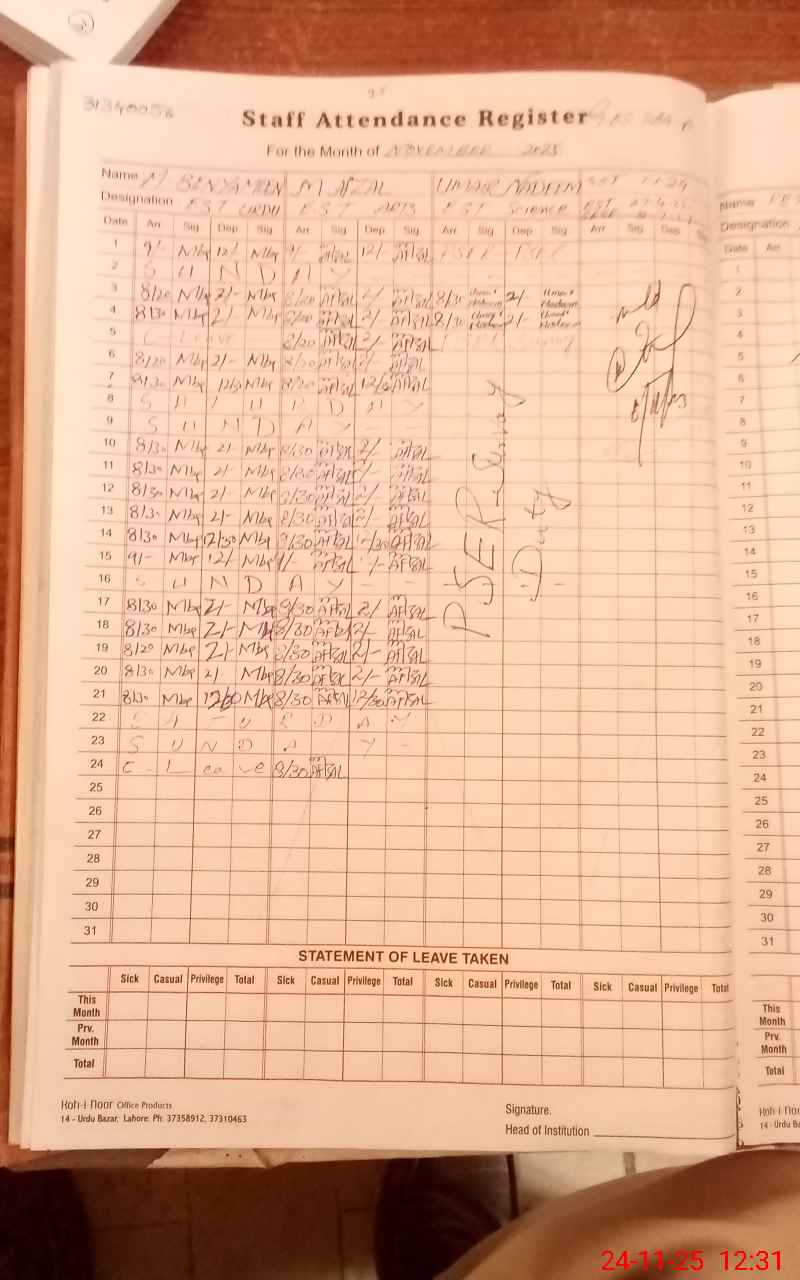 31340058
Staff Attendance Register
For the Month of NOVEMBER 2025
Name M BENYAMEEN M AFZAL UMAIR NADEEM
Designation EST URDU EST ARTS EST Science
Date Arr Sig Dep Sig Arr Sig Dep Sig Arr Sig Dep Sig Arr Sig Dep Sig
1 9/- Mbg 12/- Mbg 9/- AFZAL 12/- AFZAL PSER PSER
2 S U N D A Y
3 8/20 Mbg 2/- Mbg 8/20 AFZAL 2/- AFZAL 8/30 Umair Nadeem 2/- Umair Nadeem
4 8/30 Mbg 2/- Mbg 8/20 AFZAL 2/- AFZAL 8/30 Umair Nadeem 2/- Umair Nadeem
5 C Leave 8/20 AFZAL 2/- AFZAL
6 8/20 Mbg 2/- Mbg 8/30 AFZAL 2/- AFZAL
7 8/30 Mbg Mbg 8/20 AFZAL AFZAL
8 S A T U R D A Y
9 S U N D A Y
10 8/30 Mbg 2/- Mbg 8/30 AFZAL 2/- AFZAL
11 8/30 Mbg 2/- Mbg 8/30 AFZAL AFZAL
12 8/30 Mbg 2/- Mbg 8/30 AFZAL 2/- AFZAL
13 8/30 Mbg 2/- Mbg 8/30 AFZAL 2/- AFZAL
14 8/30 Mbg 12/30 Mbg 8/30 AFZAL 12/30 AFZAL
15 9/- Mbg 12/- Mbg 9/- AFZAL AFZAL
16 S U N D A Y
17 8/30 Mbg 2/- Mbg 8/30 AFZAL 2/- AFZAL
18 8/30 Mbg 2/- Mbg 8/30 AFZAL 2/- AFZAL
19 8/20 Mbg 2/- Mbg 8/30 AFZAL 2/- AFZAL
20 8/30 Mbg 2/- Mbg 8/30 AFZAL 2/- AFZAL
21 8/30 Mbg 12/30 Mbg 8/30 AFZAL 12/30 AFZAL
22 S A T U R D A Y
23 S U N D A Y
24 C - Leave 8/30 AFZAL
25
26
27
28
29
30
31
PSER Survey
Duty
STATEMENT OF LEAVE TAKEN
Sick Casual Privilege Total Sick Casual Privilege Total Sick Casual Privilege Total Sick Casual Privilege Total
This Month
Prv. Month
Total
Koh-i-Noor Office Products
14 - Urdu Bazar, Lahore. Ph: 37358912, 37310463
Signature.
Head of Institution
Name
Designation
Date Arr
1
2
3
4
5
6
7
8
9
10
11
12
13
14
15
16
17
18
19
20
21
22
23
24
25
26
27
28
29
30
31
This Month
Prv. Month
Total
Koh-i-Noo
14 - Urdu Ba
24-11-25 12:31